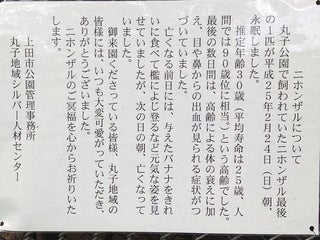 ニホンザルについて
丸子公園で飼われていたニホンザル最後
の1匹が平成25年2月24日(日)朝、
永眠しました。
推定年齢30歳(平均寿命は25歳、人
間では90歳位に相当。)という高齢でした。
最後の数日間は、高齢による体の衰えに加
え、目や鼻からの出血が見られる症状がつ
づいていました。
亡くなる前日には、与えたバナナをきれ
いに食べて檻によじ登るなど元気な姿を見
せていましたが、次の日の朝、亡くなって
いました。
御来園くださっている皆様、丸子地域の
皆様には、いつも大変可愛がっていただき、
ありがとうございました。
ニホンザルのご冥福を心からお祈りいた
します。
上田市公園管理事務所
丸子地域シルバー人材センター